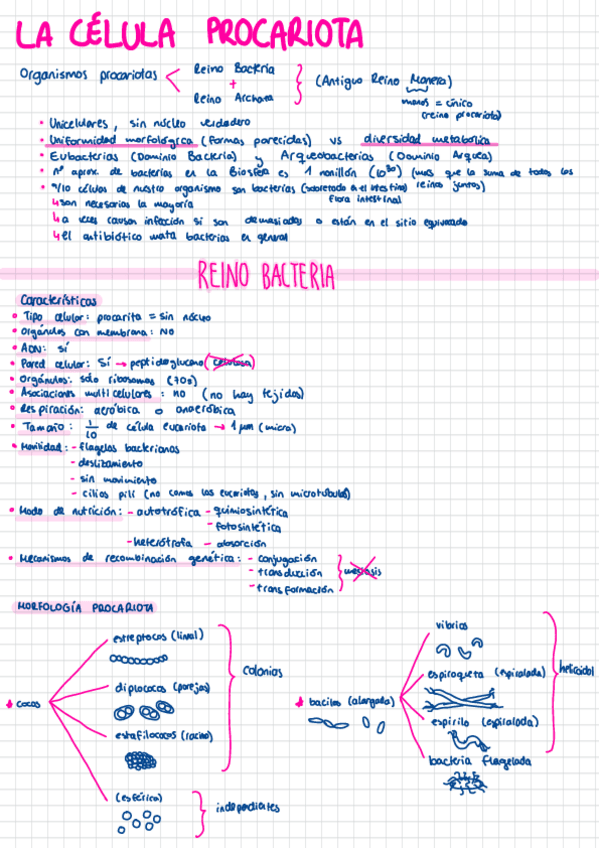 LA CÉLULA PROCARIOTA
Organismos procariotas < Reino Bacteria + Reino Archaea } (Antiguo Reino Monera)
moneres = cínico
(reino procariota)
• Unicelulares, sin núcleo verdadero
• Uniformidad morfológica (formas parecidas) vs diversidad metabólica
• Eubacterias (Dominio Bacteria) y Arqueobacterias (Dominio Arquea)
• nº aprox. de bacterias en la Biosfera es 1 nonillón (10³⁰) (más que la suma de todos los reinos juntos)
• 9/10 células de nuestro organismo son bacterias (sobretodo en el intestino)
flora intestinal
↳ son necesarias la mayoría
↳ a veces causan infección si son demasiadas o están en el sitio equivocado
↳ el antibiótico mata bacterias en general
REINO BACTERIA
Características
• Tipo celular: procarita = sin núcleo
• Orgánulos con membrana: NO
• ADN: sí
• Pared celular: Sí → peptidoglucano (celulosa)
• Orgánulos: sólo ribosomas (70s)
• Asociaciones multicelulares: no (no hay tejidos)
• Respiración: aeróbica o anaeróbica
• Tamaño: 1/10 de célula eucariota → 1 µm (micra)
• Movilidad: - flagelos bacterianos
- deslizamiento
- sin movimiento
- cilios pili (no comos los eucariotas, sin microtúbulos)
• Modo de nutrición: - autotrófica - quimiosintética
- fotosintética
- heterótrofa - absorción
• Mecanismos de recombinación genética: - conjugación
- transducción
- transformación
} meiosis
MORFOLOGÍA PROCARIOTA
cocos
estreptococos (lineal)
diplococos (parejas)
estafilococos (racimo)
} colonias
(esférico)
} independientes
bacilos (alargada)
vibrios
espiroqueta (espiralada)
espirilo (espiralada)
} helicoidal
bacteria flagelada